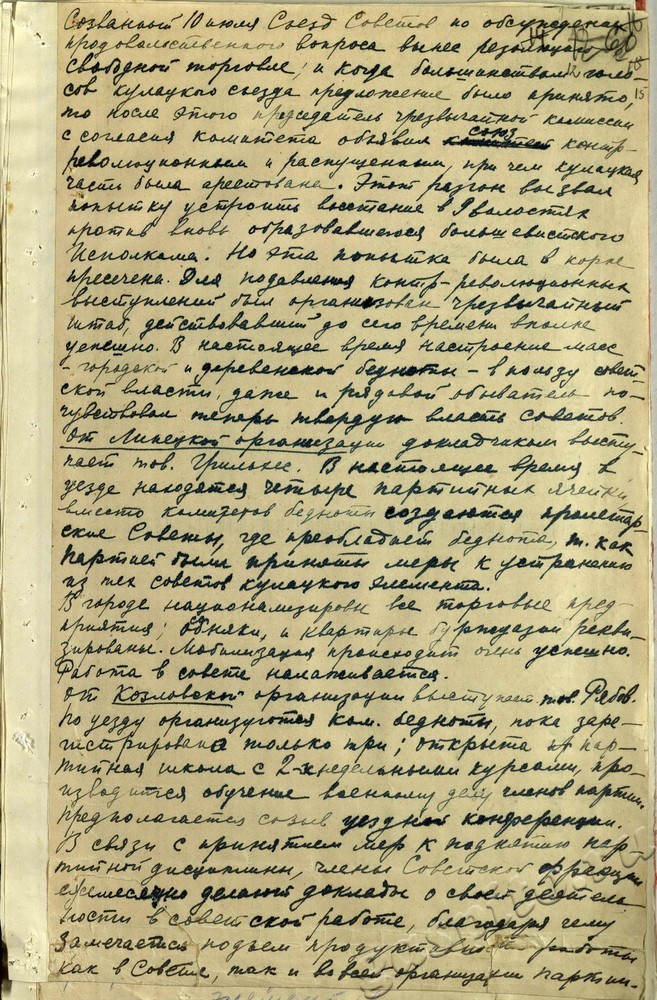 Созванный 10 июля Съезд Советов по обсуждению
продовольственного вопроса вынес резолюцию о
свободной торговле; и когда большинством голо-
сов кулацкого съезда предложение было принято,
то после этого председатель чрезвычайной комиссии
с согласия комитета объявил союз контр-
революционным и распущенным, при чем кулацкая
часть была арестована. Этот разгон вызвал
попытку устроить восстание в 9 волостях
против вновь образовавшегося большевистского
Исполкома. Но эта попытка была в корне
пресечена. Для подавления контр-революционных
выступлений был организован чрезвычайный
штаб, действовавший до сего времени вполне
успешно. В настоящее время настроение масс
- городской и деревенской бедноты - в пользу совет-
ской власти, даже и рядовой обыватель по-
чувствовал теперь твердую власть советов.
От Липецкой организации докладчиком высту-
пает тов. В настоящее время в
уезде находятся четыре партийных ячейки
вместо комитетов бедноты создаются пролетар-
ские Советы, где преобладает беднота, т. как
партией были приняты меры к устранению
из тех советов кулацкого элемента.
В городе национализированы все торговые пред-
приятия; особняки, и квартиры буржуазии рекви-
зированы. Мобилизация происходит очень успешно.
Работа в совете налаживается.
От Козловской организации выступает тов. Рябов.
По уезду организуются ком. бедноты, пока заре-
гистрирована только три; открыта пар-
тийная школа с 2-х недельными курсами, про-
изводится обучение военному делу членов партии.
Предполагается созыв уездной конференции.
В связи с принятием мер к поднятию пар-
тийной дисциплины, члены Советской фракции
ежемесячно делают доклады о своей деятель-
ности в советской работе, благодаря чему
замечается подъем продуктивности работы
как в Совете, так и во всей организации партии.